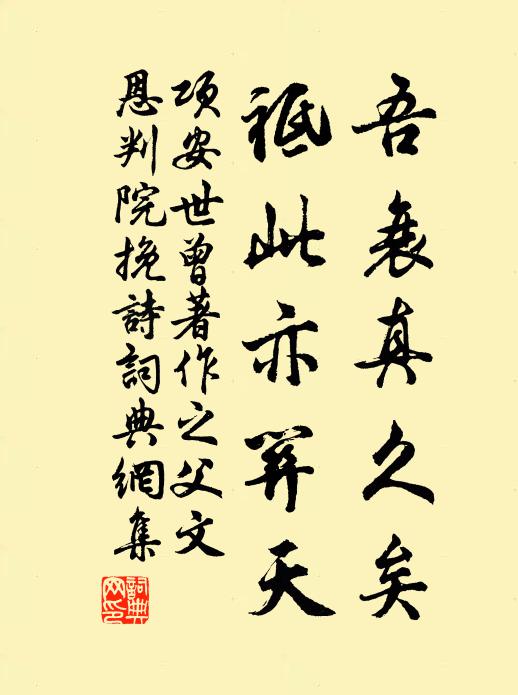 吾衰真久矣
祗此亦關天
項安世曾著作之父文
恩判院挽詩詞典網集